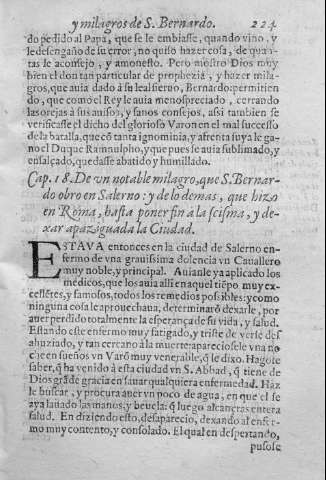 y milagros de S. Bernardo. 224
do pedido al Papa, que se le embiasse, quando vino, y
le desengaño de su error, no quiso hazer cosa, de quan
tas le aconsejo, y amonesto. Pero mostro Dios muy
bien el don tan particular de prophezia, y hazer mila
gros, que auia dado à su leal sieruo, Bernardo: permitien
do, que como el Rey le auia menospreciado, cerrando
las orejas à sus auisos, y sanos consejos, assi tambien se
verificasse el dicho del glorioso Varon en el mal successo
de la batalla, que cō tanta ignominia, y afrenta suya le ga-
no el Duque Ramnulpho, y que pues le auia sublimado, y
ensalçado, quedasse abatido y humillado.
Cap. 18. De vn notable milagro, que S. Bernar-
do obro en Salerno: y de lo demas, que hizo
en Roma, hasta poner fin a la scisma, y de-
xar apaziguada la Ciudad.
ESTAVA entonces en la ciudad de Salerno en-
fermo de vna grauissima dolencia vn Cauallero
muy noble, y principal. Auianle ya aplicado los
medicos, que los auia alli en aquel tiēpo muy ex-
cellētes, y famosos, todos los remedios possibles: y como
ninguna cosa le aprouechaua, determinarō dexarle, por
auer perdido totalmente la esperança de su vida, y salud.
Estando este enfermo muy fatigado, y triste de verse des
ahuziado, y tan cercano à la muerte: apareciosele vna no
che en sueños vn Varō muy venerable, q̃ le dixo. Hagote
saber, q̃ ha venido à esta ciudad vn S. Abbad, q̃ tiene de
Dios grāde gracia en sanar qualquiera enfermedad. Haz
le buscar, y procura auer vn poco de agua, en que el se
aya lauado las manos, y beuela: q̃ luego alcançaras entera
salud. En diziendo esto, desaparecio, dexando al enfer-
mo muy contento, y consolado. El qual en despertando,
pusose